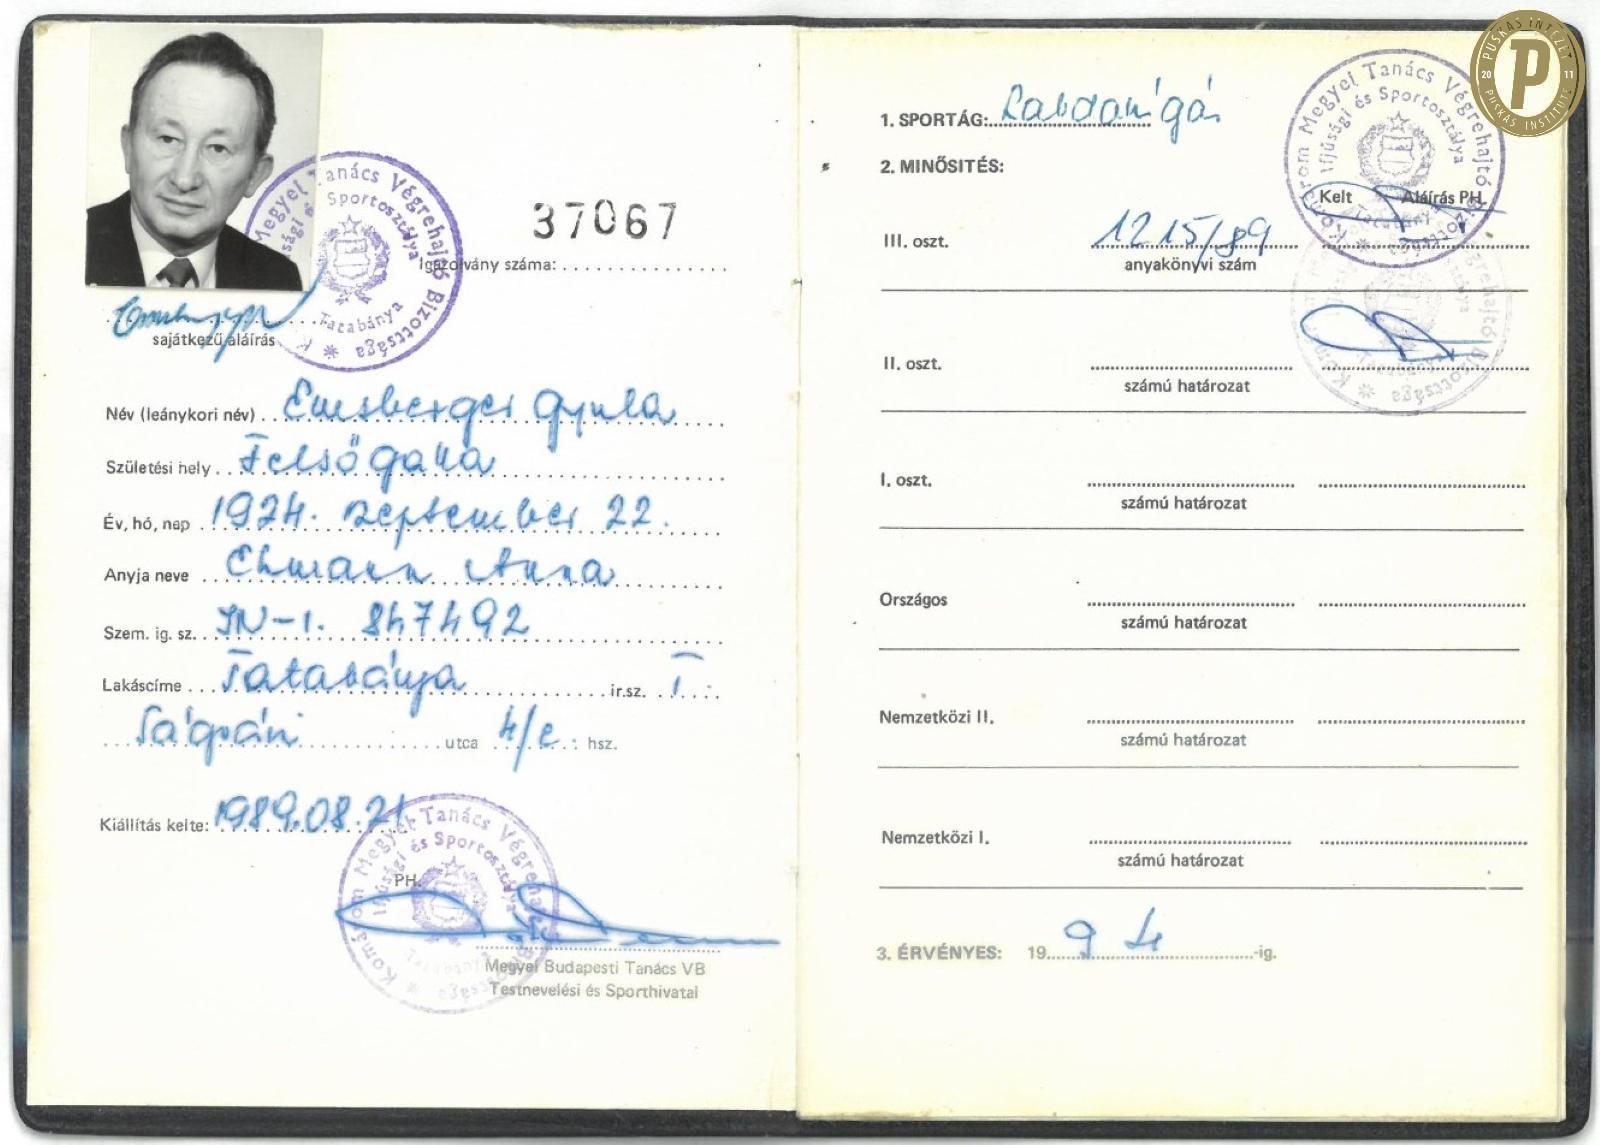 37067
Igazolvány száma:
sajátkezű aláírás
Név (leánykori név) Emsberger Gyula
Születési hely Felsőgalla
Év, hó, nap 1924. szeptember 22.
Anyja neve Ehmann Anna
Szem. ig. sz. 847492
Lakáscíme Tatabánya ir.sz. I
Ságvári utca 4/c hsz.
Kiállítás kelte: 1989.08.21
PH.
Megyei Budapesti Tanács VB
Testnevelési és Sporthivatal
Komárom Megyei Tanács Végrehajtó Bizottsága
Ifjúsági és Sportosztálya
Tatabánya
1. SPORTÁG: Labdarúgás
2. MINŐSITÉS:
Kelt Aláírás PH.
III. oszt. 1215/89
anyakönyvi szám
II. oszt.
számú határozat
I. oszt.
számú határozat
Országos
számú határozat
Nemzetközi II.
számú határozat
Nemzetközi I.
számú határozat
3. ÉRVÉNYES: 1994-ig.
Komárom Megyei Tanács Végrehajtó Bizottsága
Ifjúsági és Sportosztálya
Tatabánya
PUSKÁS INTÉZET
20 P 11
PUSKÁS INSTITUTE